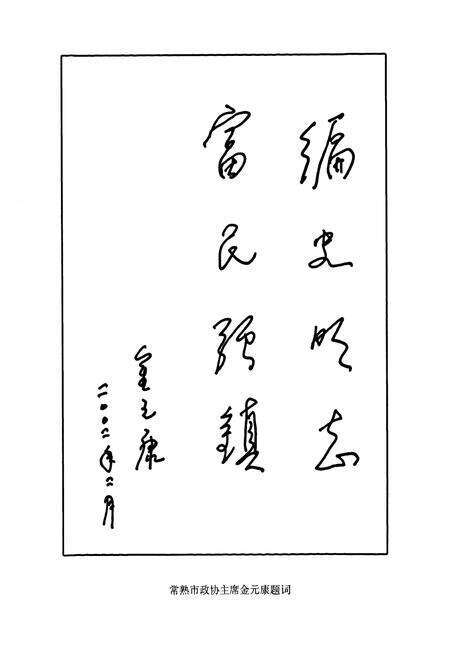 编史明志
富民强镇
金元康
二〇〇二年二月
常熟市政协主席金元康题词